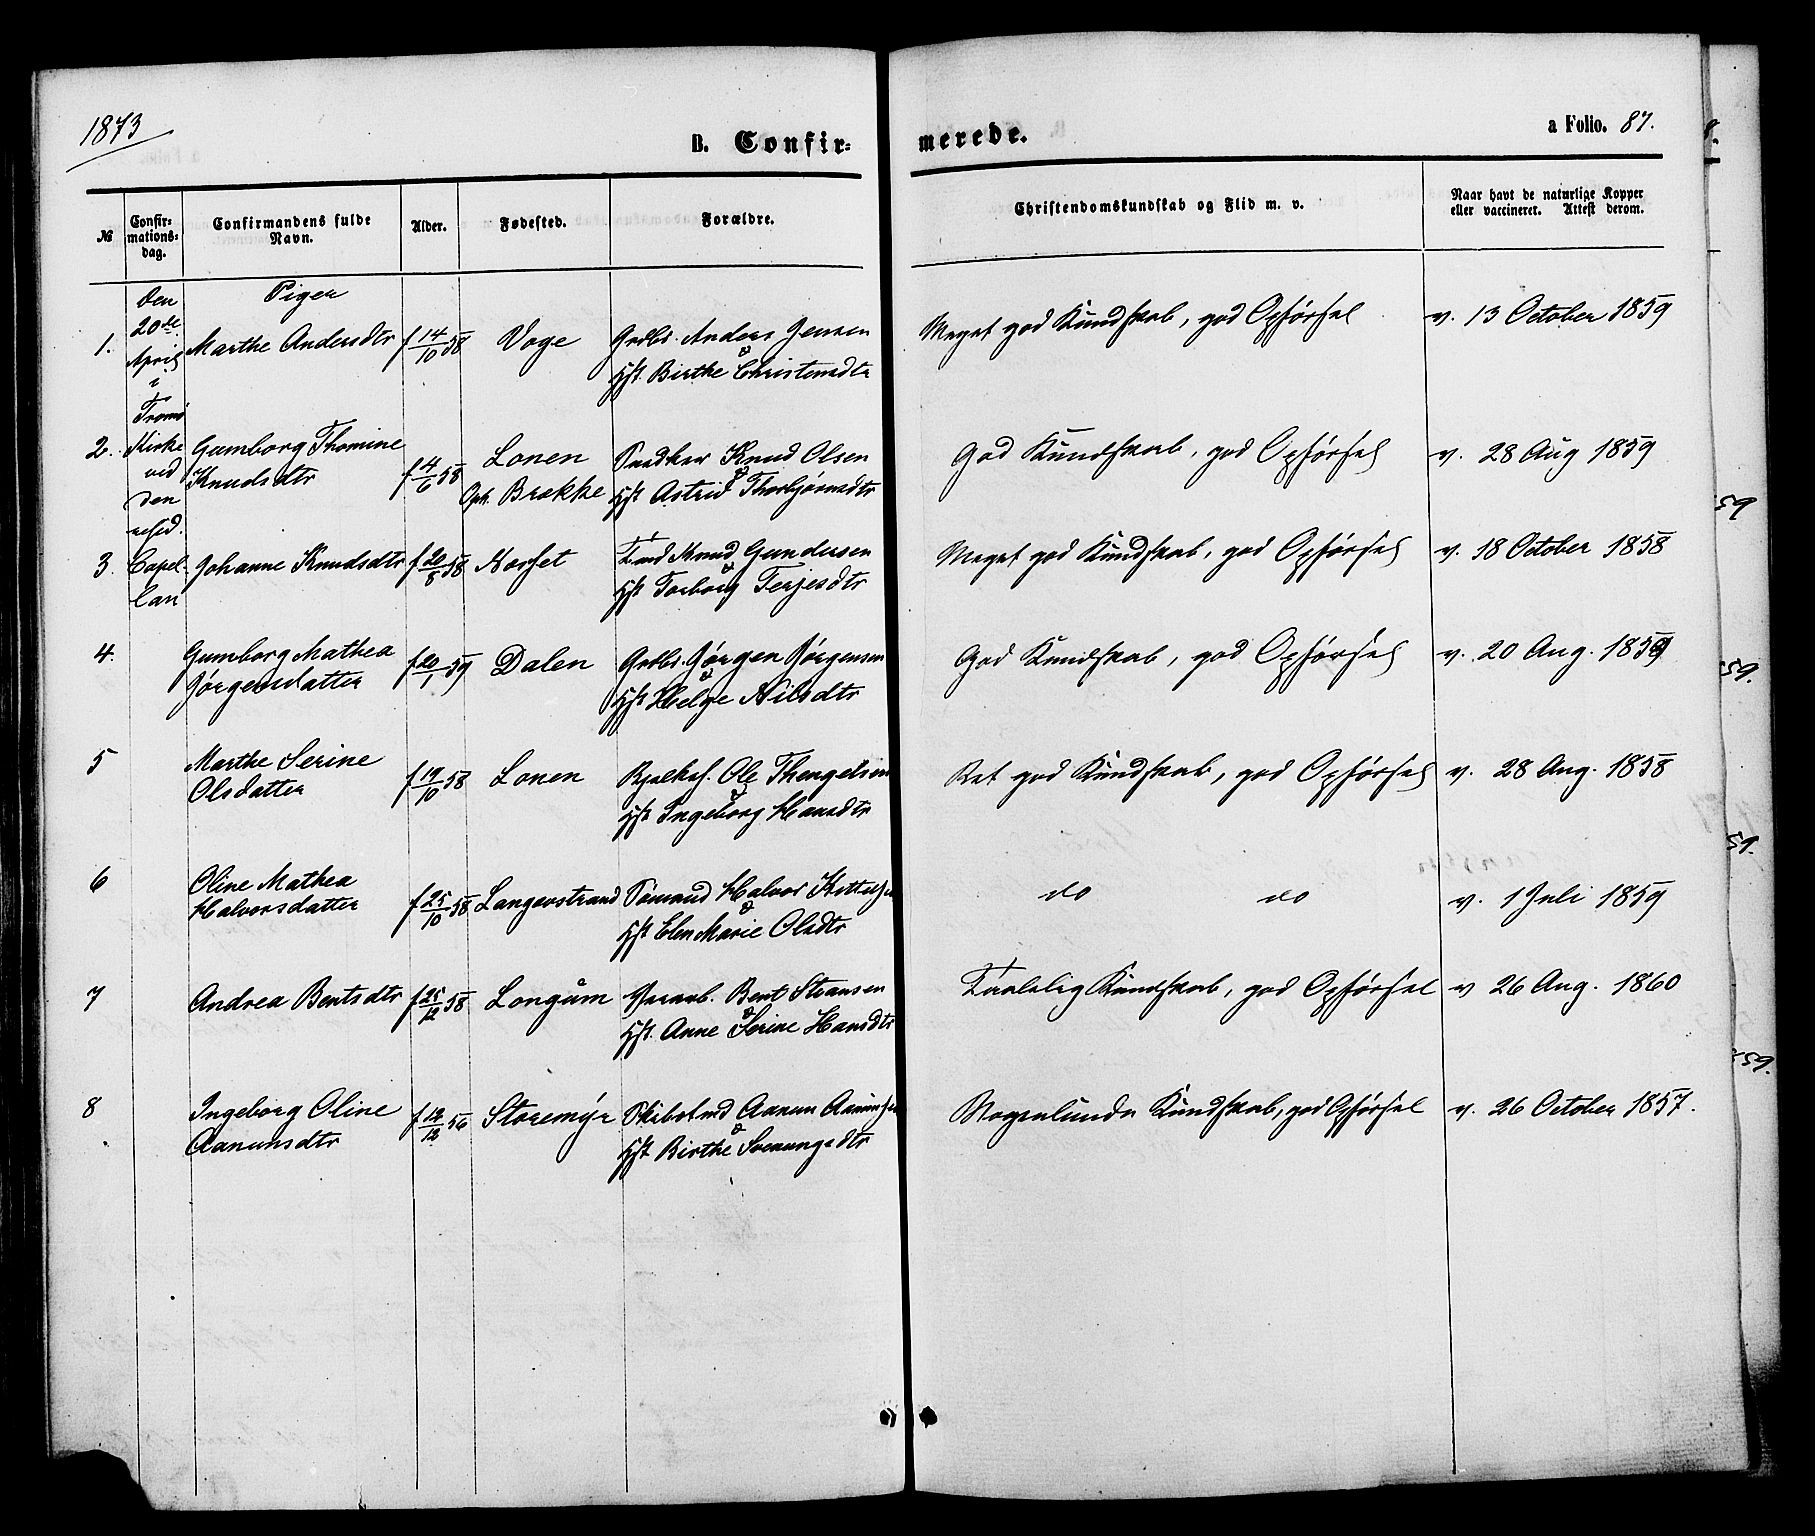 1873
B. Confir-
merede.
a Folio. 87.
№
Confir-
mations-
dag.
Confirmandens fulde
Navn.
Alder.
Fødested.
Forældre.
Christendomskundskab og Flid m. v.
Naar havt de naturlige Kopper
eller vaccineret. Attest derom.
Den
20de
April
i
Tromø
Kirke
ved
den
resid.
Capel-
lan
Piger
1. Marthe Andersdtr f 14/10 58 Voge Grdbr. Anders Jensen
& Hst Birthe Christensdtr
Meget god Kundskab, god Opførsel v. 13 October 1859
2. Gumborg Thomine
Knudsdtr f 4/6 58 Lonen
Oph. Brække
Knud Olsen
& Hst Astrid Thorbjørnsdtr
God Kundskab, god Opførsel v. 28 Aug 1859
3. Johanne Knudsdtr f 20/8 58 Norset Knud Gundersen
& Hst Torborg Terjesdtr
Meget god Kundskab, god Opførsel v. 18 October 1858
4. Gumborg Mathea
Jørgensdatter f 20/1 59 Dalen Grdbr. Jørgen Jørgensen
& Hst Helge Nilsdtr
God Kundskab, god Opførsel v. 20 Aug. 1859
5 Marthe Serine
Olsdatter f 19/10 58 Lonen Ole Thengelsen
& Hst Ingeborg Hansdtr
Ret god Kundskab, god Opførsel v. 28 Aug. 1858
6 Oline Mathea
Halvorsdatter f 25/10 58 Langevstrand Sømand Halvor Kittelsen
& Hst Elen Marie Olsdtr
do do v. 1 Juli 1859
7 Andrea Bentsdtr f 25/12 58 Longùm Bent
& Hst. Anne Serine Hansdtr
Taalelig Kundskab, god Opførsel v 26 Aug. 1860
8 Ingeborg Oline
Aanunsdtr f 12/12 56 Storemyr Aanun Aanunsen
& Hst Birthe Sveinungsdtr
Kundskab, god Opførsel v. 26 October 1857.
59
59.
59.
259.